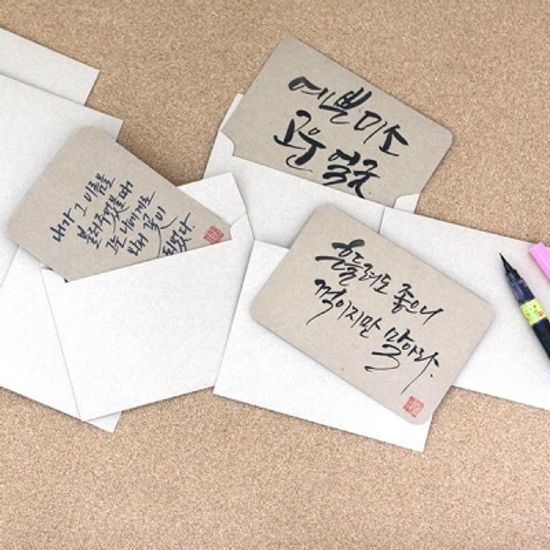 예쁜 미소
고운 얼굴
내가 그 이름을
불러주었을 때
그는 나에게로
와서 꽃이
되었다
흔들려도 좋으니
꺾이지만 말아라.